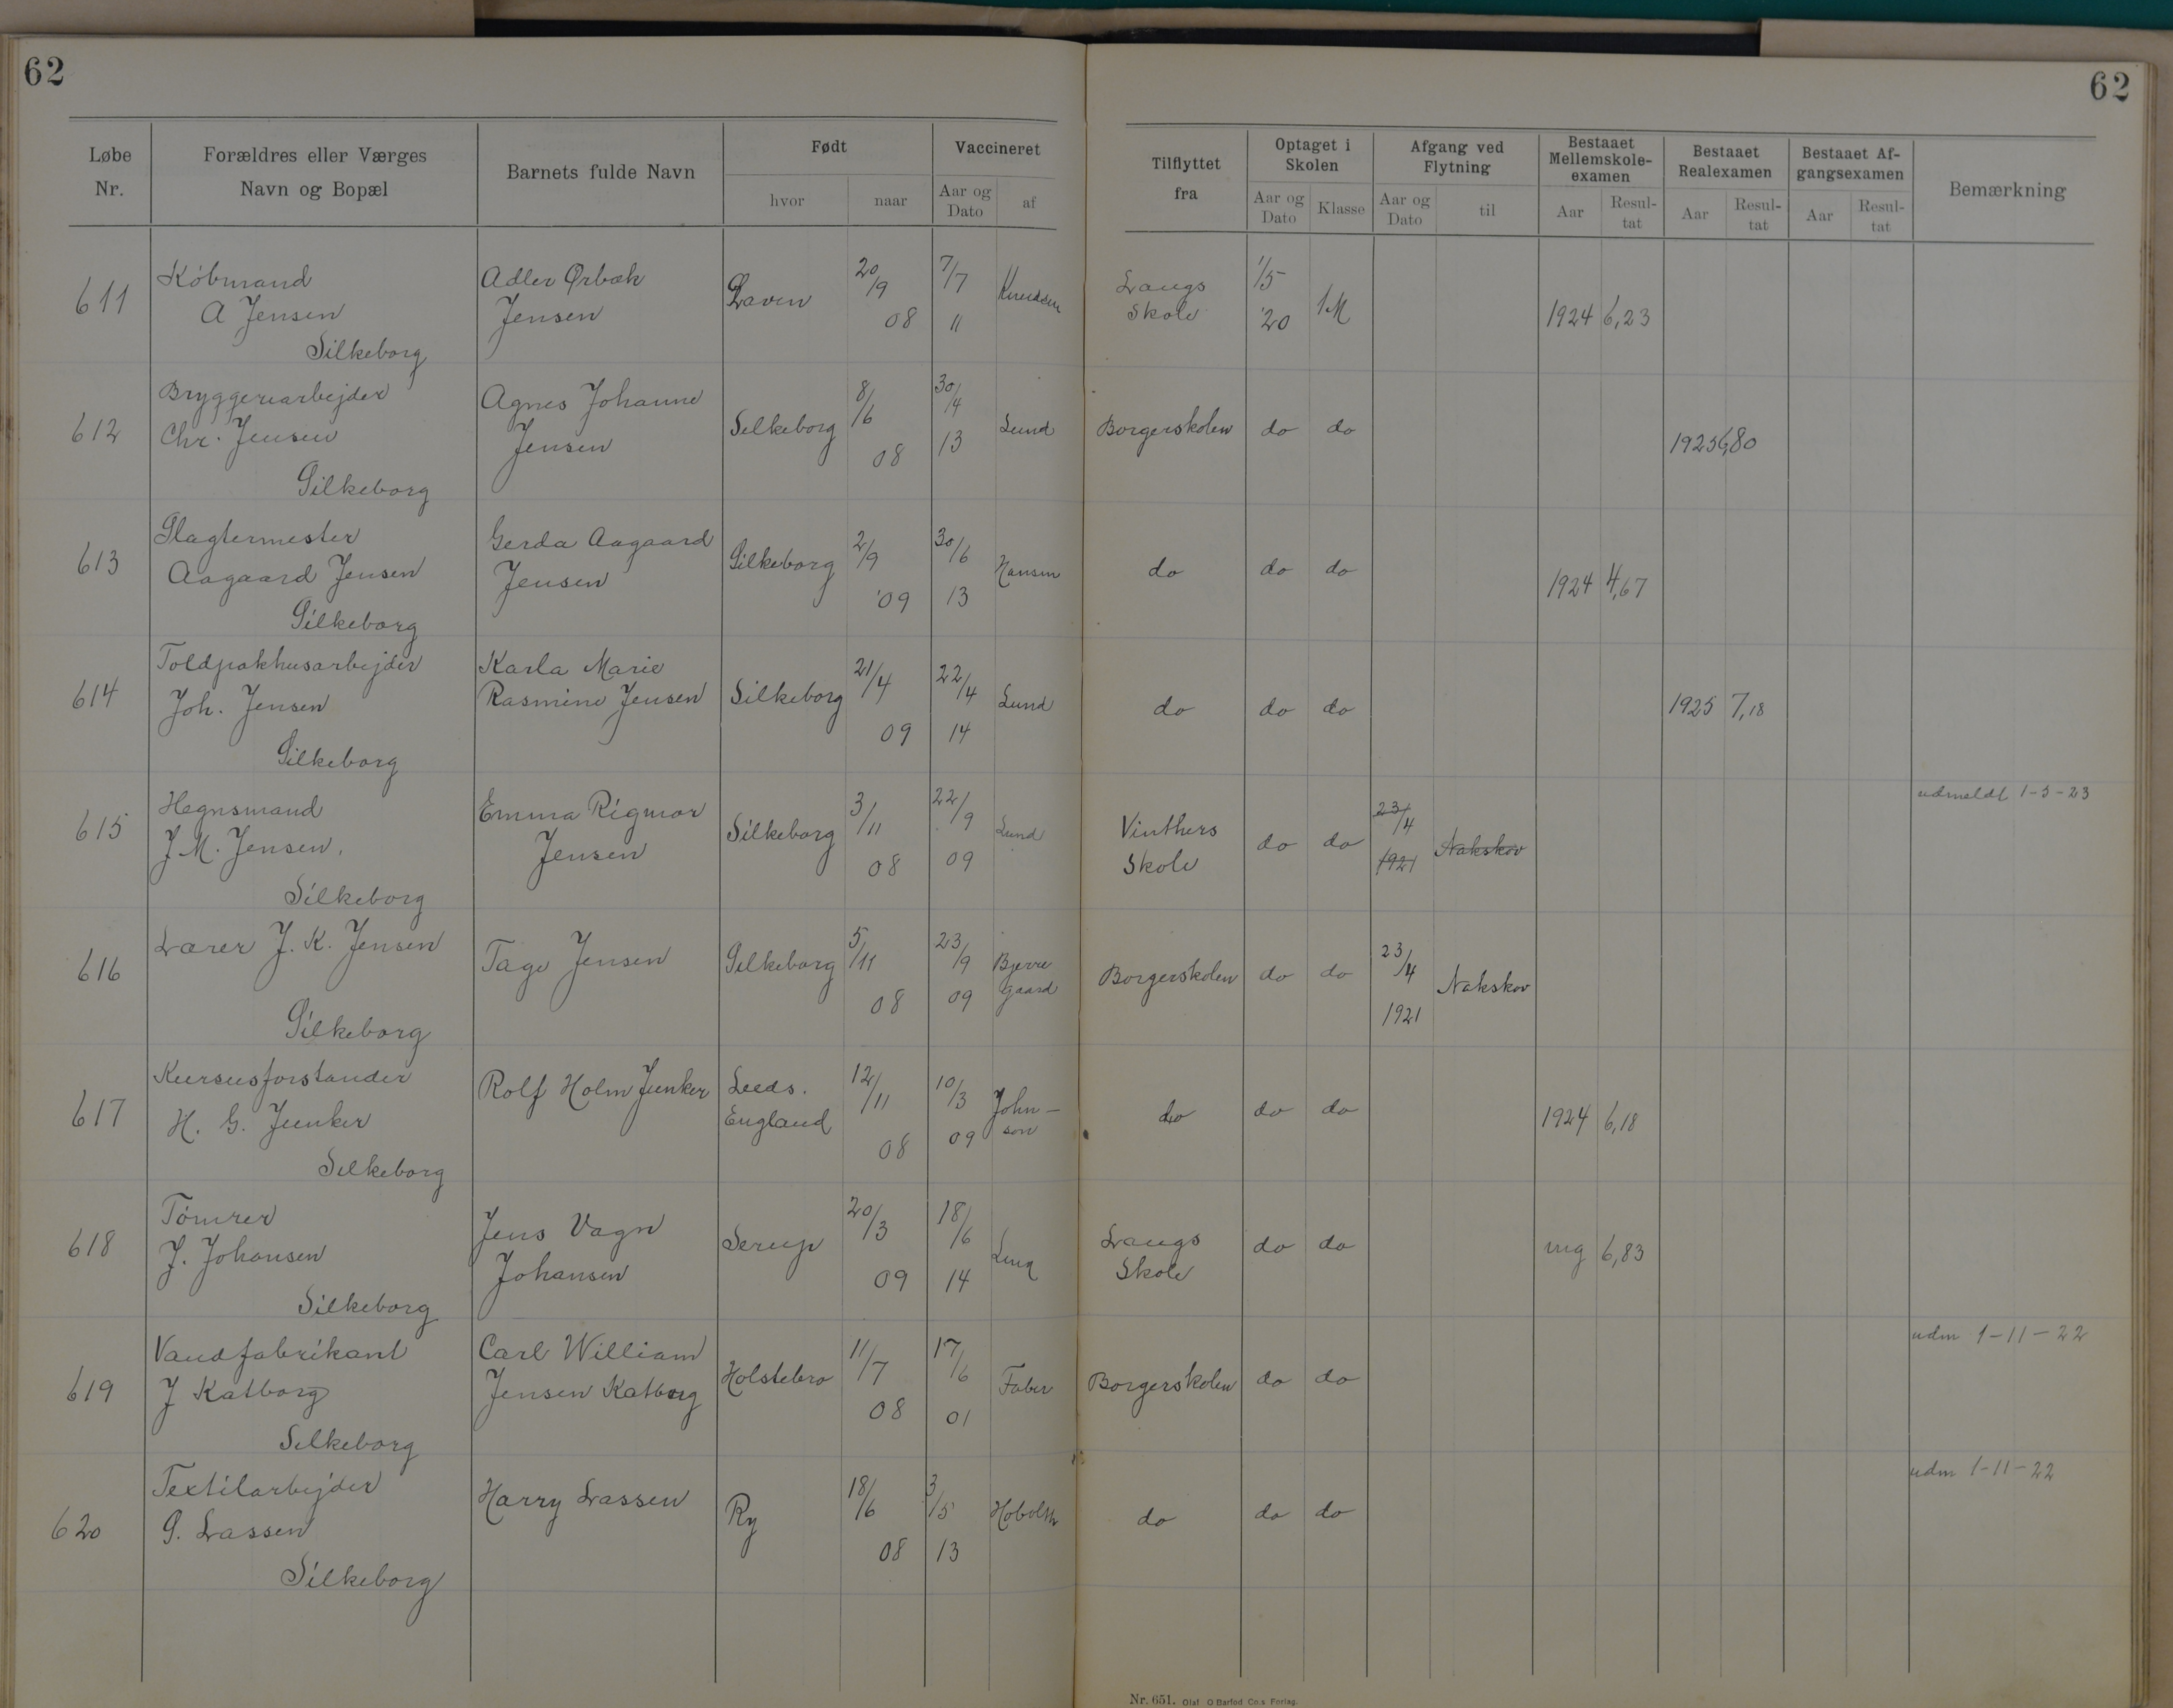 62
62
Løbe Nr.
Forældres eller Værges Navn og Bopæl
Barnets fulde Navn
Født
hvor
naar
Vaccineret
Aar og Dato
af
Tilflyttet fra
Optaget i Skolen
Aar og Dato
Klasse
Afgang ved Flytning
Aar og Dato
til
Bestaaet Mellemskole-examen
Aar
Resul-tat
Bestaaet Realexamen
Aar
Resul-tat
Bestaaet Af-gangsexamen
Aar
Resul-tat
Bemærkning
611
Købmand
A Jensen
Silkeborg
Adler Ørbæk
Jensen
Laven
20/9 08
7/7 11
Knudsen
Langs
Skole
1/5 '20
1M
1924 6,23
612
Bryggeriarbejder
Chr. Jensen
Silkeborg
Agnes Johanne
Jensen
Silkeborg
8/6 08
30/4 13
Lund
Borgerskolen
do
do
1925 6,80
613
Slagtermester
Aagaard Jensen
Silkeborg
Gerda Aagaard
Jensen
Silkeborg
2/9 '09
30/6 13
Hansen
do
do
do
1924 4,67
614
Toldpakhusarbejder
Joh. Jensen
Silkeborg
Karla Marie
Rasmine Jensen
Silkeborg
21/4 09
22/4 14
Lund
do
do
do
1925 7,18
615
Hegnsmand
J M. Jensen.
Silkeborg
Emma Rigmor
Jensen
Silkeborg
3/11 08
22/9 09
Lund
Vinthers
Skole
do
do
23/4 1921
Nakskov
udmeldt 1-5-23
616
Lærer J. K. Jensen
Silkeborg
Tage Jensen
Silkeborg
5/11 08
23/9 09
Bjerre
gaard
Borgerskolen
do
do
23/4 1921
Nakskov
617
Kursusforstander
H. G. Junker
Silkeborg
Rolf Holm Junker
Leeds.
England
12/11 08
10/3 09
John-
son
do
do
do
1924 6,18
618
Tömrer
J. Johansen
Silkeborg
Jens Vagn
Johansen
Serup
20/3 09
18/6 14
Langs
Skole
do
do
mg 6,83
619
Vandfabrikant
J Katborg
Silkeborg
Carl William
Jensen Katborg
Holstebro
11/7 08
17/6 01
Faber
Borgerskolen
do
do
udm 1-11-22
620
Textilarbejder
G. Lassen
Silkeborg
Harry Lassen
Ry
18/6 08
3/5 13
Hobolth
do
do
do
udm 1-11-22
Nr. 651. Olaf O Barfod Co.s Forlag.